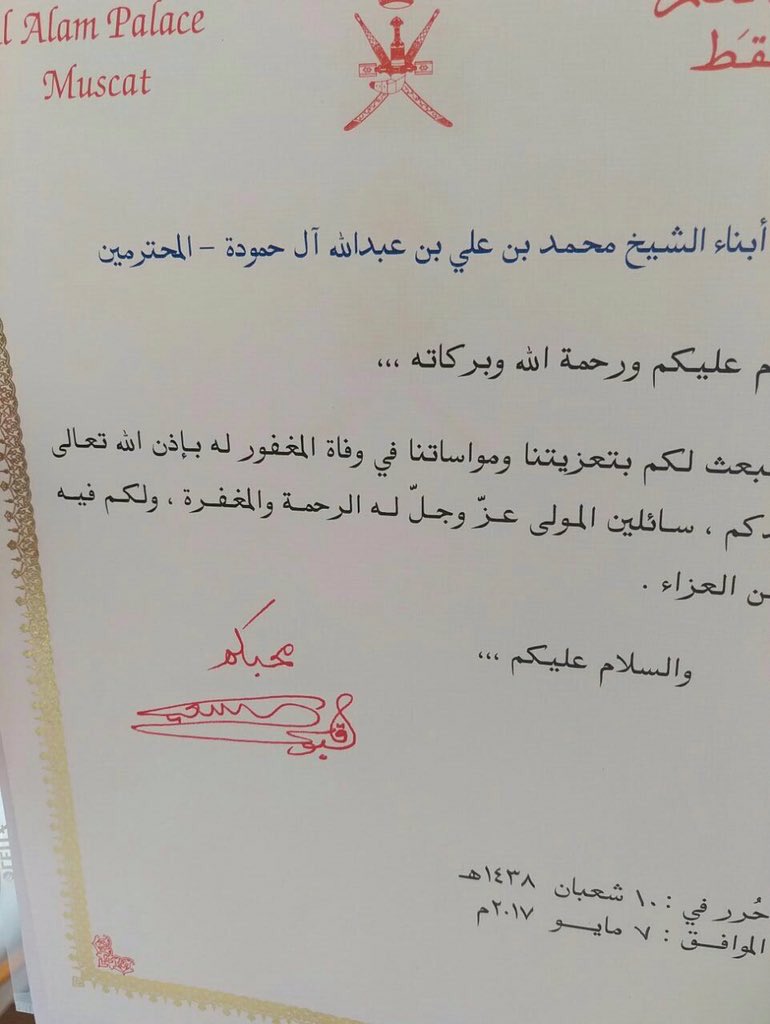 Alam Palace
Muscat
أبناء الشيخ محمد بن علي بن عبدالله آل حمودة - المحترمين
عليكم ورحمة الله وبركاته ،،،
لكم بتعزيتنا ومواساتنا في وفاة المغفور له بإذن الله تعالى
، سائلين المولى عزّ وجلّ له الرحمة والمغفرة ، ولكم فيه
العزاء .
والسلام عليكم ،،،
محبكم
قابوس سعيد
حُرر في : ١٠ شعبان ١٤٣٨هـ
الموافق : ٧ مايو ٢٠١٧م